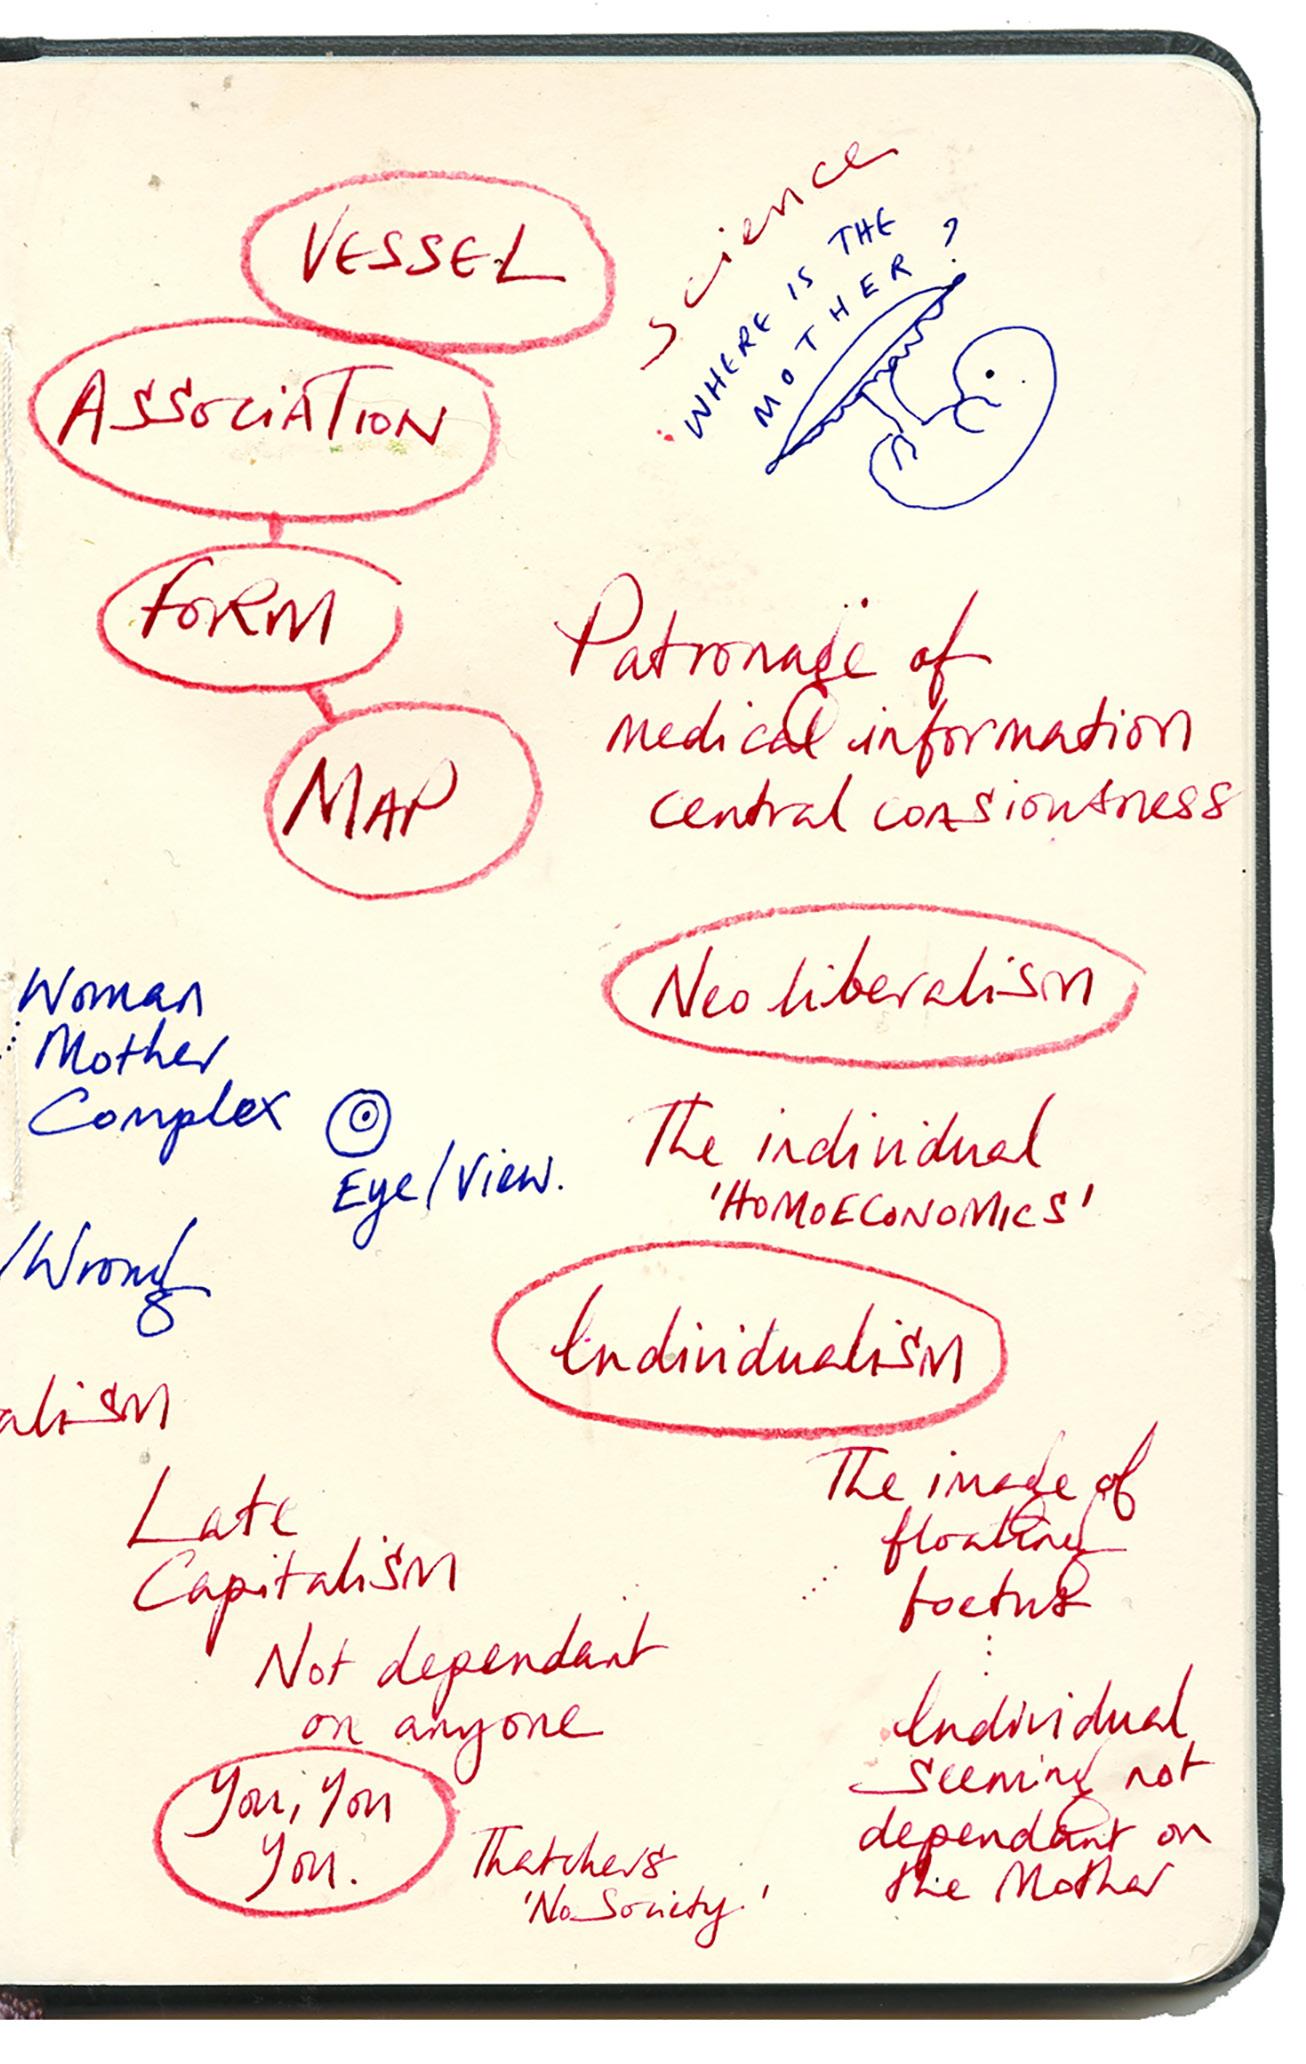 VESSEL
ASSOCIATION
FORM
MAP
Science
WHERE IS THE
MOTHER?
Patronage of
medical information
central consiousness
Neoliberalism
The individual
'HOMOECONOMICS'
Individualism
Woman
Mother
Complex
Eye/View.
/Wrong
alism
Late
Capitalism
Not dependant
on anyone
You, You
You.
Thatchers
'No Society.'
The image of
floating
foetus
Individual
seeming not
dependant on
the Mother